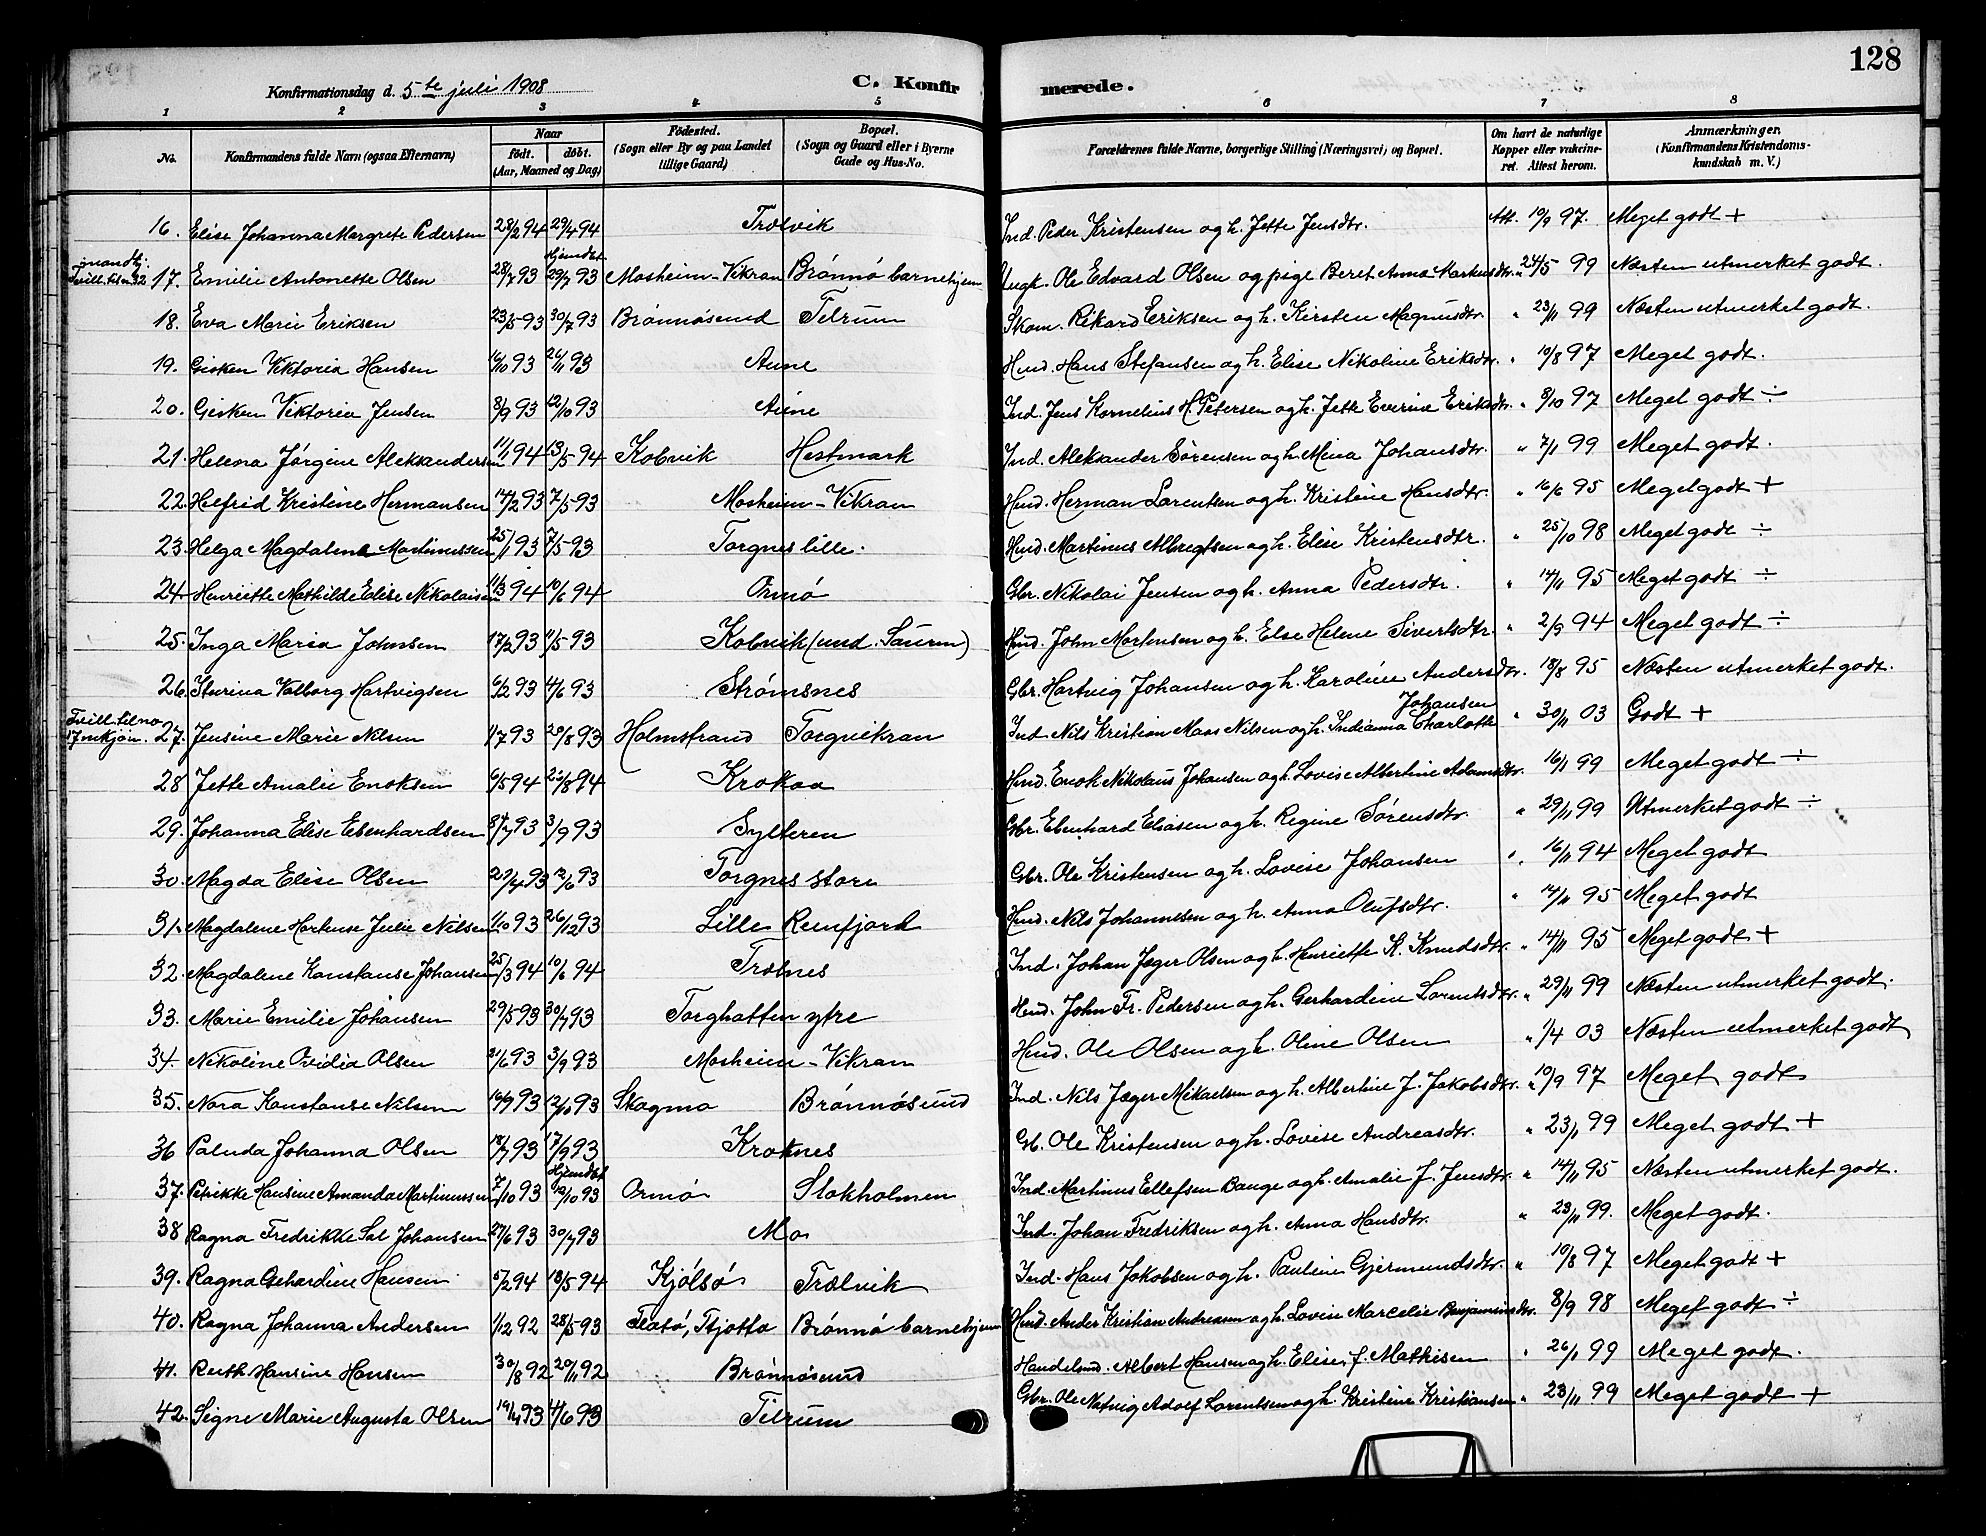 128
Konfirmationsdag d. 5te juli 1908
C. Konfirmerede.
1 2 3 4 5 6 7 8
No. Konfirmandens fulde Navn (ogsaa Efternavn) Naar født. døbt. (Aar, Maaned og Dag) Fødested. (Sogn eller By og paa Landet tillige Gaard) Bopæl. (Sogn og Gaard eller i Byerne Gade og Hus-No. Forældrenes fulde Navne, borgerlige Stilling (Næringsvei) og Bopæl. Om havt de naturlige Kopper eller vaccineret. Attest herom. Anmærkninger. (Konfirmandens Kristendomskundskab m. V.)
16. Elise Johanna Margrete Pedersen 28/2 94 29/4 94 Trælvik Ind. Peder Kristensen og h. Jette Jensdtr. Att. 10/9 97. Meget godt +
17. Emilie Antonette Olsen 28/7 93 Hjemdøbt 29/7 93 Mosheim-Vikran Brønnø barnehjem Ungk. Ole Edvard Olsen og pige Beret Anna Markusdtr. " 24/5 99 Næsten utmerket godt.
18. Eva Marie Eriksen 23/5 93 30/7 93 Brønnøsund Tilrum Skom. Rikard Eriksen og h. Kirsten Magnusdtr. " 23/11 99 Næsten utmerket godt.
19. Gisken Viktoria Hansen 16/10 93 26/11 93 Aune Hmd. Hans Stefansen og h. Elise Nikoline Eriksdtr. " 10/8 97 Meget godt.
20. Gisken Viktoria Jensen 8/9 93 12/10 93 Aune Ind. Jens Kornelius H. Petersen og h. Jette Everine Eriksdtr. " 8/10 97 Meget godt ÷
21. Helena Jørgine Aleksandersen 11/1 94 13/5 94 Kobvik Hestmark Ind. Aleksander Sørensen og h. Mina Johansdtr. " 7/1 99 Meget godt.
22. Helfrid Kristine Hermansen 14/2 93 7/5 93 Mosheim-Vikran Hmd. Herman Larentsen og h. Kristine Hansdtr. " 16/6 95 Meget godt +
23. Helga Magdalena Martinussen 25/1 93 7/5 93 Torgnes lille. Hmd. Martinus Albregtsen og h. Elise Kristensdtr. " 25/10 98 Meget godt ÷
24. Henriette Mathilde Elise Nikolaisen 11/3 94 10/6 94 Ormø Gbr. Nikolai Jensen og h. Anna Pedersdtr. " 14/11 95 Meget godt ÷
25. Inga Maria Johnsen 17/2 93 11/5 93 Kobvik (und. Sauren) Hmd. John Mortensen og h. Else Helene Sivertsdtr. " 2/9 94 Meget godt ÷
26. Valborg Hartvigsen 6/2 93 4/6 93 Strømsnes Gbr. Hartvig Johansen og h. Karoline Andersdtr. " 18/8 95 Næsten utmerket godt.
27. Jensine Marie Nilsen 1/7 93 20/8 93 Holmstrand Torgvikran Ind. Nils Kristian Maas Nilsen og h. Indianna Charlotte Johansen " 30/11 03 Godt +
28 Jette Amalie Enoksen 6/5 94 26/8 94 Krokaa Hmd. Enok Nikolaus Johansen og h. Lovise Albertine Adamsdtr. " 16/1 99 Meget godt ÷
29. Johanna Elise Ebenhardsen 8/7 93 3/9 93 Sylteren Gbr. Ebenhard Eliasen og h. Regine Sørensdtr. " 29/11 99 Utmerket godt ÷
30. Magda Elise Olsen 29/4 93 12/6 93 Torgnes store Gbr. Ole Kristensen og h. Lovise Johansen " 16/11 94 Meget godt
31. Magdalene Julie Nilsen 1/10 93 26/12 93 Lille Remfjord Hmd. Nils Johannesen og h. Anna Olufsdtr. " 14/11 95 Meget godt
32. Magdalene Konstanse Johansen 25/3 94 10/6 94 Trælnes Ind. Johan Jæger Olsen og h. Henriette K. Knudsdtr. " 14/11 95 Meget godt +
33. Marie Emilie Johansen 29/5 93 30/7 93 Torghatten ytre Hmd. John Fr. Pedersen og h. Gerhardine Lorentsdtr. " 29/11 99 Næsten utmerket godt.
34. Nikoline Ovidia Olsen 21/6 93 3/9 93 Mosheim-Vikran Hmd. Ole Olsen og h. Oline Olsen " 1/4 03 Næsten utmerket godt
35. Nora Konstanse Nilsen 16/7 93 12/10 93 Skogmo Brønnøsund Ind. Nils Jæger Mikaelsen og h. Albertine J. Jakobsdtr. " 10/9 97 Meget godt
36 Paluda Johanna Olsen 18/7 93 17/9 93 Kroknes Gb. Ole Kristensen og h. Lovise Andreasdtr. " 23/1 99 Meget godt +
37. Petrikke Hansine Amanda Martinussen 7/10 93 Hjemdøbt 10/10 93 Ormø Stokholmen Ind. Martinus Ellefsen Bauge og h. Amalie J. Jensdtr. " 14/11 95 Næsten utmerket godt.
38 Ragna Fredrikke Sal Johansen 27/6 93 30/7 93 Mo Ind. Johan Fredriksen og h. Anna Hansdtr. " 23/11 99. Meget godt.
39. Ragna Gehardine Hansen 5/2 94 13/5 94 Kjølsø Trælvik Ind. Hans Jakobsen og h. Pauline Gjermundsdtr. " 10/8 97 Meget godt +
40. Ragna Johanna Andersen 1/12 92 28/5 93 Flatø, Tjøtta Brønnø barnehjem Hmd. Ander Kristian Andreassen og h. Lovise Marcelie Benjaminsdtr. 8/9 98 Meget godt ÷
41. Ruth Hansine Hansen 30/8 92 20/11 92 Brønnøsund Handelsmd. Albert Hansen og h. Elise, f. Mathisen " 26/1 99 Meget godt.
42. Signe Marie Augusta Olsen 19/4 93 4/6 93 Tilrum Gbr. Ole Natvig Adolf Lorentsen og h. Kristine Kristiansen " 23/11 99 Meget godt +